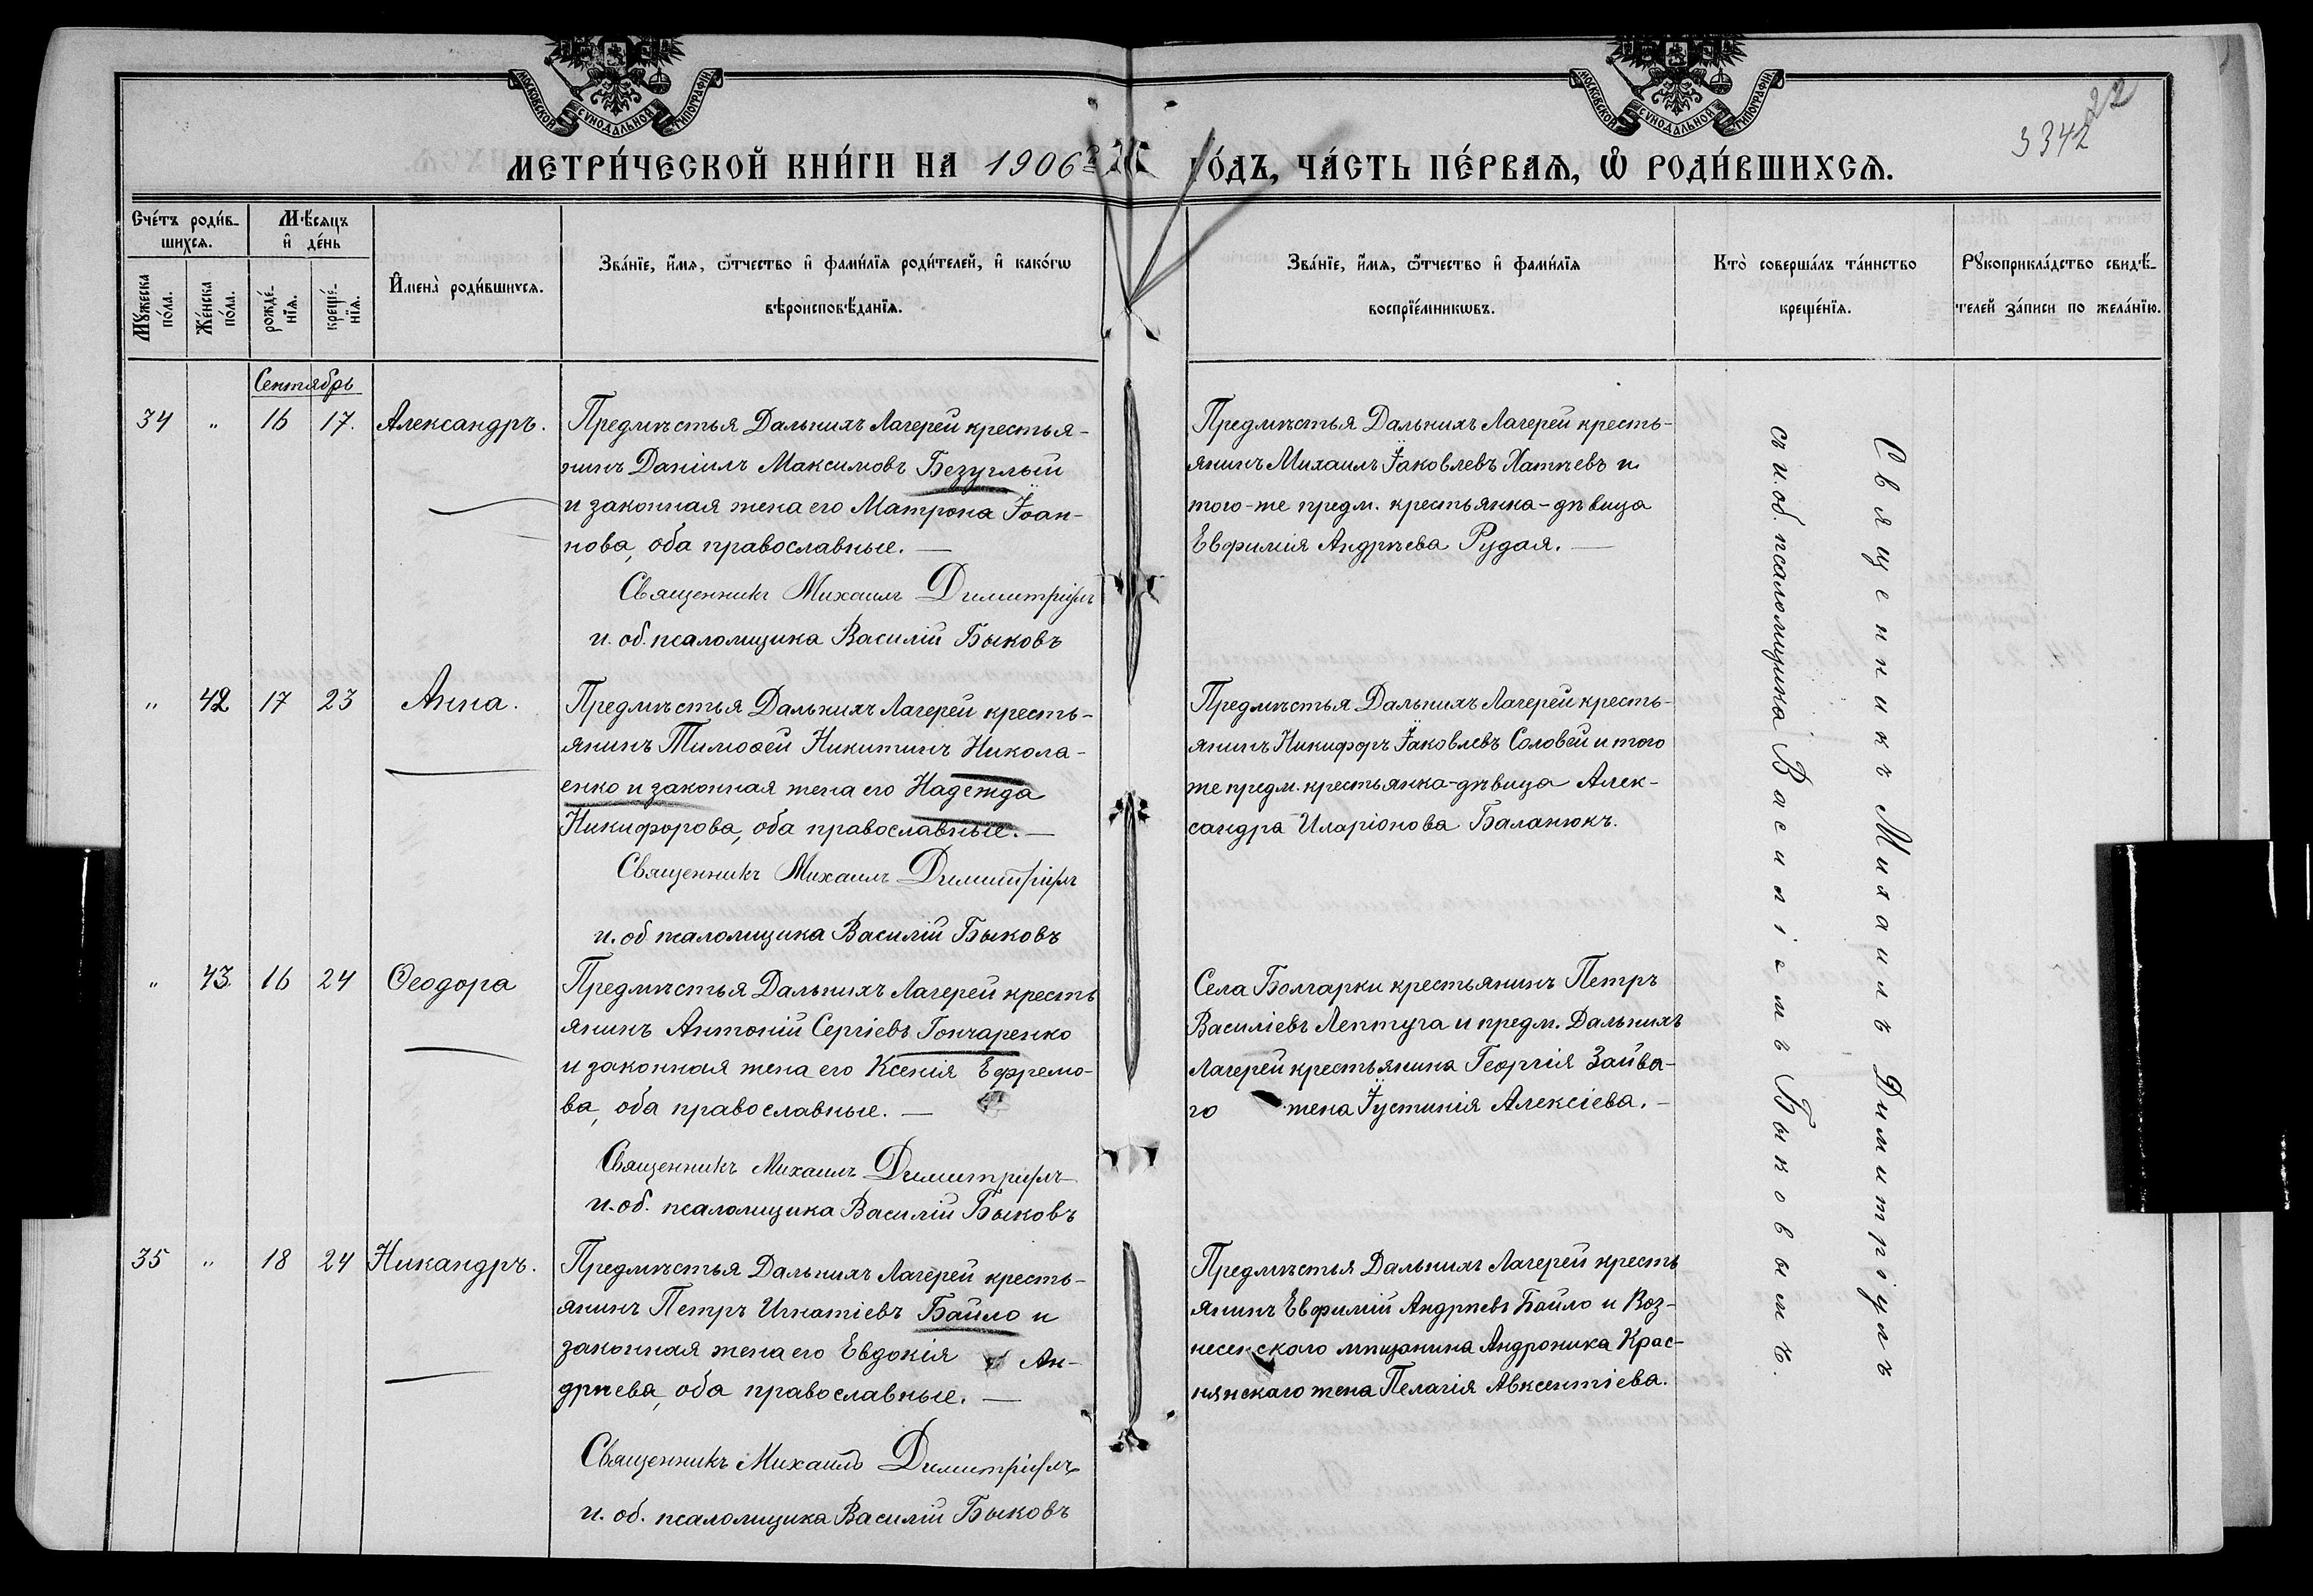 МОСКОВСКОЙ СѴНОДАЛЬНОЙ ТИПОГРАФІИ
МОСКОВСКОЙ СѴНОДАЛЬНОЙ ТИПОГРАФІИ
22
3342
МЕТРИ́ЧЕСКОЙ КНИ́ГИ НА 1906й ГО́ДЪ, ЧА́СТЬ ПЕ́РВАѦ, Ѡ҆ РОДИ́ВШИХСѦ.
Сче́тъ роди́в-
шихсѧ.
Мѣ́сѧцъ
и҆ де́нь
Мꙋ́жеска по́ла.
Же́нска по́ла.
рожде́-нїѧ.
креще́-нїѧ.
И҆мена̀ роди́вшихсѧ.
Зва́нїе, и҆́мѧ, ѻ҆́тчество и҆ фами́лїѧ роди́телей, и҆ како́гѡ
вѣроисповѣ́данїѧ.
Зва́нїе, и҆́мѧ, ѻ҆́тчество и҆ фами́лїѧ
воспрїе́мникѡвъ.
Кто̀ соверша́лъ та́инство
креще́нїѧ.
Рꙋкоприкла́дство свидѣ́-
телей за́писи по жела́нїю.
Сентябрь
34 " 16 17. Александръ.
Предмѣстья Дальнихъ Лагерей крестья-
нинъ Даніилъ Максимовъ Безуглый
и законная жена его Матрона Іоан-
нова, оба православные. —
Священникъ Михаилъ Димитріу
и. об. псаломщика Василій Быковъ
Предмѣстья Дальнихъ Лагерей кресть-
янинъ Михаилъ Іаковлевъ Хатневъ и
того-же предм. крестьянка-дѣвица
Евфимія Андрѣева Рудая. —
" 42 17 23 Анна.
Предмѣстья Дальнихъ Лагерей кресть-
янинъ Тимоѳей Никитинъ Никола-
енко и законная жена его Надежда
Никифорова, оба православные. —
Священникъ Михаилъ Димитріу
и. об псаломщика Василій Быковъ
Предмѣстья Дальнихъ Лагерей кресть-
янинъ Никифоръ Іаковлевъ Соловей и того
же предм. крестьянка-дѣвица Алек-
сандра Иларіонова Баланюкъ.
" 43. 16 24 Ѳеодора
Предмѣстья Дальнихъ Лагерей кресть
янинъ Антоній Сергіевъ Гончаренко
и законная жена его Ксенія Ефремо-
ва, оба православные. —
Священникъ Михаилъ Димитріу
и. об. псаломщика Василій Быковъ
Села Болгарки крестьянинъ Петръ
Василіевъ Лептуга и предм. Дальнихъ
Лагерей крестьянина Георгія Зайва-
го жена Іустинія Алексіева. —
35 " 18 24 Никандръ.
Предмѣстья Дальнихъ Лагерей кресть-
янинъ Петръ Игнатіевъ Байло и
законная жена его Евдокія Ан-
дрѣева, оба православные. —
Священникъ Михаилъ Димитріу
и. об. псаломщика Василій Быковъ
Предмѣстья Дальнихъ Лагерей кресть
янинъ Евфимій Андрѣевъ Байло и Воз-
несенскаго мѣщанина Андроника Крас-
нянскаго жена Пелагія Авксентіева.
Священникъ Михаилъ Димитріу
съ и. об. псаломщика Василіемъ Быковымъ.